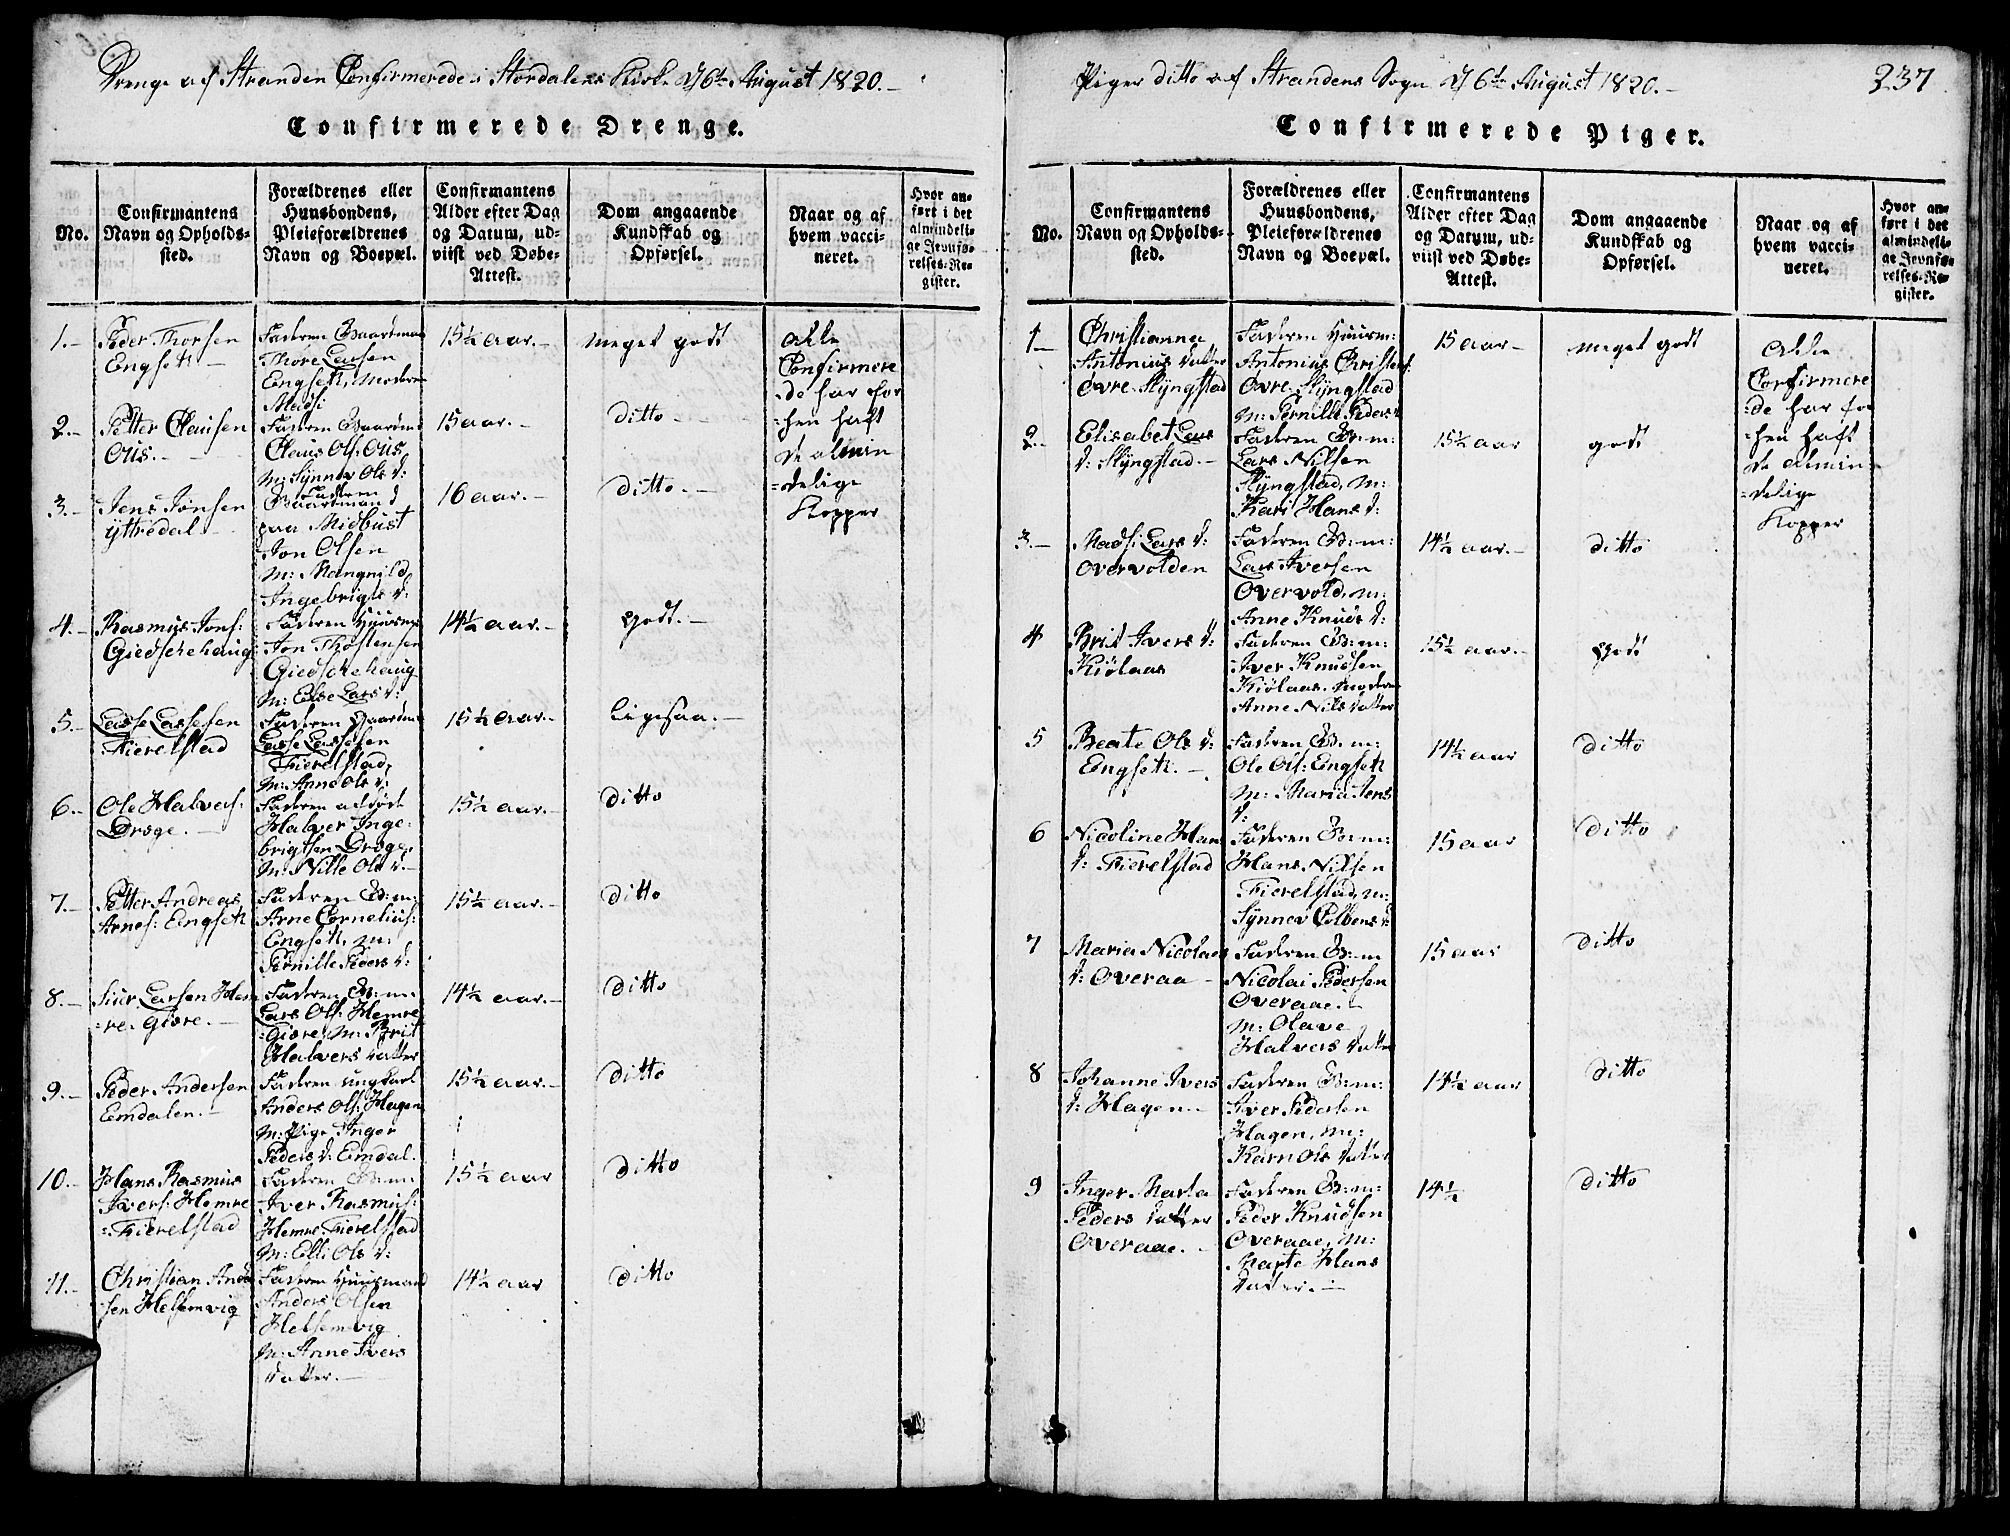 Drenge af Stranden Confirmerede i Stordalens Kirke d 6te August 1820.
Confirmerede Drenge.
No.
Confirmantens
Navn og Opholds-
sted.
Forældrenes eller
Huusbondens,
Pleieforældrenes
Navn og Boepæl.
Confirmantens
Alder efter Dag
og Datum, ud-
viist ved Døbe-
Attest.
Dom angaaende
Kundskab og
Opførsel.
Naar og af
hvem vacci-
neret.
Hvor an-
ført i det
almindeli-
ge Jevnfø-
relses-Re-
gister.
1.-
Peder Thorsen
Engseth -
Faderen Gaardman
Thore Larsen
Engseth, Moderen
Madsi
15½ aar.-
meget godt
alle
Confirmere
-de har for
-hen haft
de almin
-delige
Kopper
2.-
Petter Clausen
Ous.-
Faderen Gaardm
Claus Ols: Ous
M: Synnev Ols d:
15 aar.-
ditto -
3.-
Jens Jonsen
yttredal-
Faderen
Gaardmand
paa Midbust
Jon Olsen
M: Mangnild
Ingebrigts d:
16 aar.-
ditto.-
4.-
Rasmus Jons:
Giedschehaug
Faderen Huusm
Jon Thostensen
Giedschehaug
M: Else Lars d:
14½ aar.-
godt.-
5.-
Lasse Lassesen
Fierelstad
Faderen Gaardm
Lasse Lassesen
Fierelstad,
M: Anne Ols d:
15½ aar.-
ligesaa.-
6.-
Ole Halvers:
Droge.-
Faderen afdøde
Halver Inge-
brigtsen Droge,
M: Nille Ols d.-
15½ aar.-
ditto
7.-
Petter Andreas
Arnes: Engseth
Faderen G:m:
Arne Cornelius:
Engseth, m:
Pernille Peders d:
15½ aar.-
ditto
8.-
Siur Larsen Hem
-re, Giøre.-
Faderen G:m:
Lars Ols: Hemre
Giøre, M: Brit
Halvers datter
14½ aar.-
ditto
9.-
Peder Andersen
Emdalen.-
Faderen ungkarl
Anders Ols: Hagen
M: Pige Inger
Peders d: Emdal.
15½ aar.-
ditto
10.-
Hans Rasmus
Ivers: Hemre
Fierelstad
Faderen G:m:
Iver Rasmus:
Hemre Fierelstad
M: Elli Ols d:
15½ aar
ditto
11.-
Christian Ander
sen Helsemvig
Faderen Huusmand
Anders Olsen
Helsemvig
M: Anne Ivers
datter.-
14½ aar
ditto
Piger ditto af Strandens Sogn d 6te August 1820.-
237
Confirmerede Piger.
No.
Confirmantens
Navn og Opholds-
sted.
Forældrenes eller
Huusbondens,
Pleieforældrenes
Navn og Boepæl.
Confirmantens
Alder efter Dag
og Datum, ud-
viist ved Døbe-
Attest.
Dom angaaende
Kundskab og
Opførsel.
Naar og af
hvem vacci-
neret.
Hvor an-
ført i det
almindeli-
ge Jevnfø-
relses-Re-
gister.
1-
Christianna
Antonius datter
Øvre Slyngstad
Faderen Huusm:
Antonius Christens:
Øvre Slyngstad
M: Pernille Peders d
15 aar-
meget godt
alle
Confirmere
-de har for
-hen haft
de almin-
-delige
Kopper
2-
Elisabet Lars
d: Slyngstad.-
Faderen G:m:
Lars Nilsen
Slyngstad, M:
Kari Hans d:
15½ aar
godt
3.-
Madsi Lars d:
Overvolden
Faderen G:m:
Lars Iversen
Overvold, m:
Anne Knuds d:
14½ aar.-
ditto
4
Brit Ivers d:
Kiølaas
Faderen G:m:
Iver Knudsen
Kiølaas. moderen
Anne Nils datter
15½ aar.-
godt
5
Beate Ols d:
Engseth.-
Faderen G:m:
Ole Ols: Engseth
M: Maria Jens
d:
14½ aar
ditto
6
Nicoline Hans
d: Fierelstad
Faderen G:m:
Hans Nilsen
Fierelstad, m:
Synnev Colbens d:
15 aar
ditto
7
Maria Nicolaes
d: Overaa-
Faderen G:m
Nicolai Pedersen
Overaae.-
M: Olave
Halvers datter
15 aar
ditto
8
Johanne Ivers
d: Hagen.-
Faderen G:m:
Iver Pedersen
Hagen, m:
Karn Ols datter
14½ aar
ditto
9
Inger Marta
Peders datter
Overaae.-
Faderen G:m:
Peder Knudsen
Overaae, M:
Marte Hans
datter.-
14½
ditto